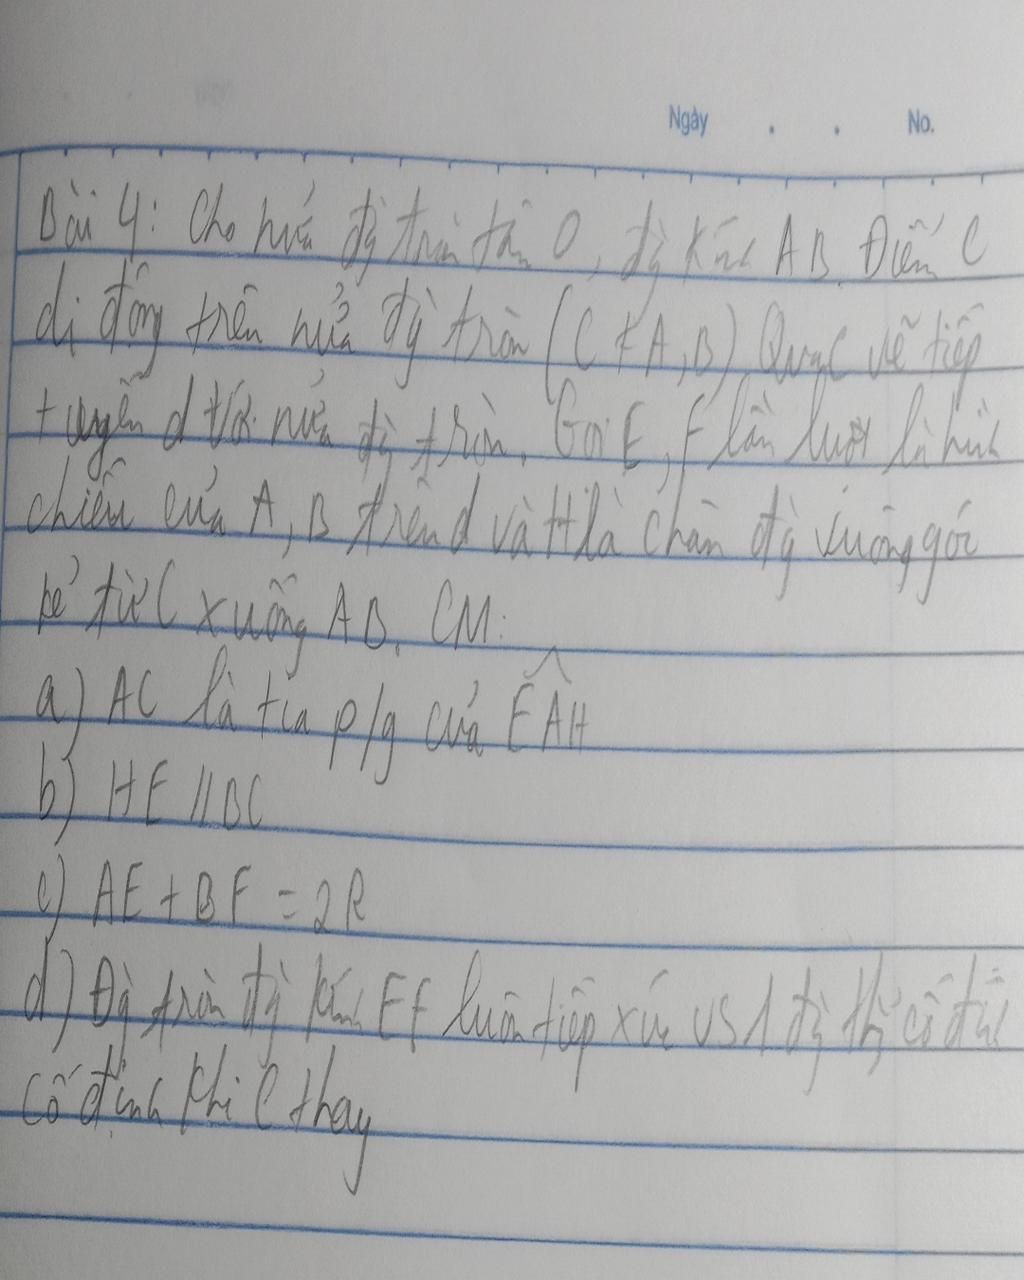 Ngày . . No.
Bài 4: Cho nửa đg tròn tâm O, đg kính AB. Điểm C
di động trên nửa đg tròn (C ≠ A, B). Qua C vẽ tiếp
tuyến d với nửa đg tròn. Gọi E, F lần lượt là hình
chiếu của A, B trên d và H là chân đg vuông góc
kẻ từ C xuống AB. CM:
a) AC là tia p/g của EÂH
b) HE // BC
c) AE + BF = 2R
d) Đg tròn đg kính EF luôn tiếp xúc vs 1 đg thg cố định
cố định khi C thay